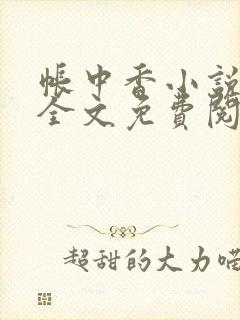 帳中香小說
全文免費閱
超甜的大力喵